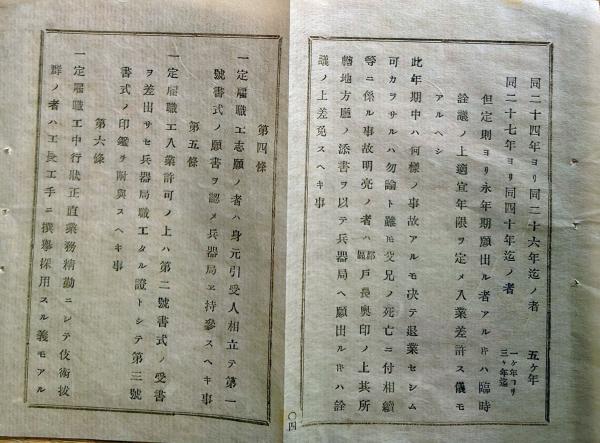 同二十四年ヨリ同二十六年迄ノ者 五ケ年
同二十七年ヨリ同四十年迄ノ者 一ケ年ヨリ三ケ年迄
但定則ヨリ永年期願出ル者アルㇳキハ臨時
詮議ノ上適宜年限ヲ定メ入業差許ス儀モ
アルヘシ
此年期中ハ何樣ノ事故アルモ决テ退業セシム
可カラサルハ勿論ト雖𪜈父兄ノ死亡ニ付相續
等ニ係ル事故明亮ノ者ハ郡區戸長奥印ノ上其所
轄地方廳ノ添書ヲ以テ兵器局ヘ願出ルㇳキハ詮
議ノ上差免スヘキ事
〇四
第四條
一定雇職工志願ノ者ハ身元引受人相立テ第一
號書式ノ願書ヲ認メ兵器局ヱ持參スヘキ事
第五條
一定雇職工入業許可ノ上ハ第二號書式ノ受書
ヲ差出サセ兵器局職工タル證トシテ第三號
書式ノ印鑑ヲ附與スヘキ事
第六條
一定雇職工中行狀正直業務精勤ニシテ伎術拔
群ノ者ハ工長工手ニ撰擧採用スル義モアル